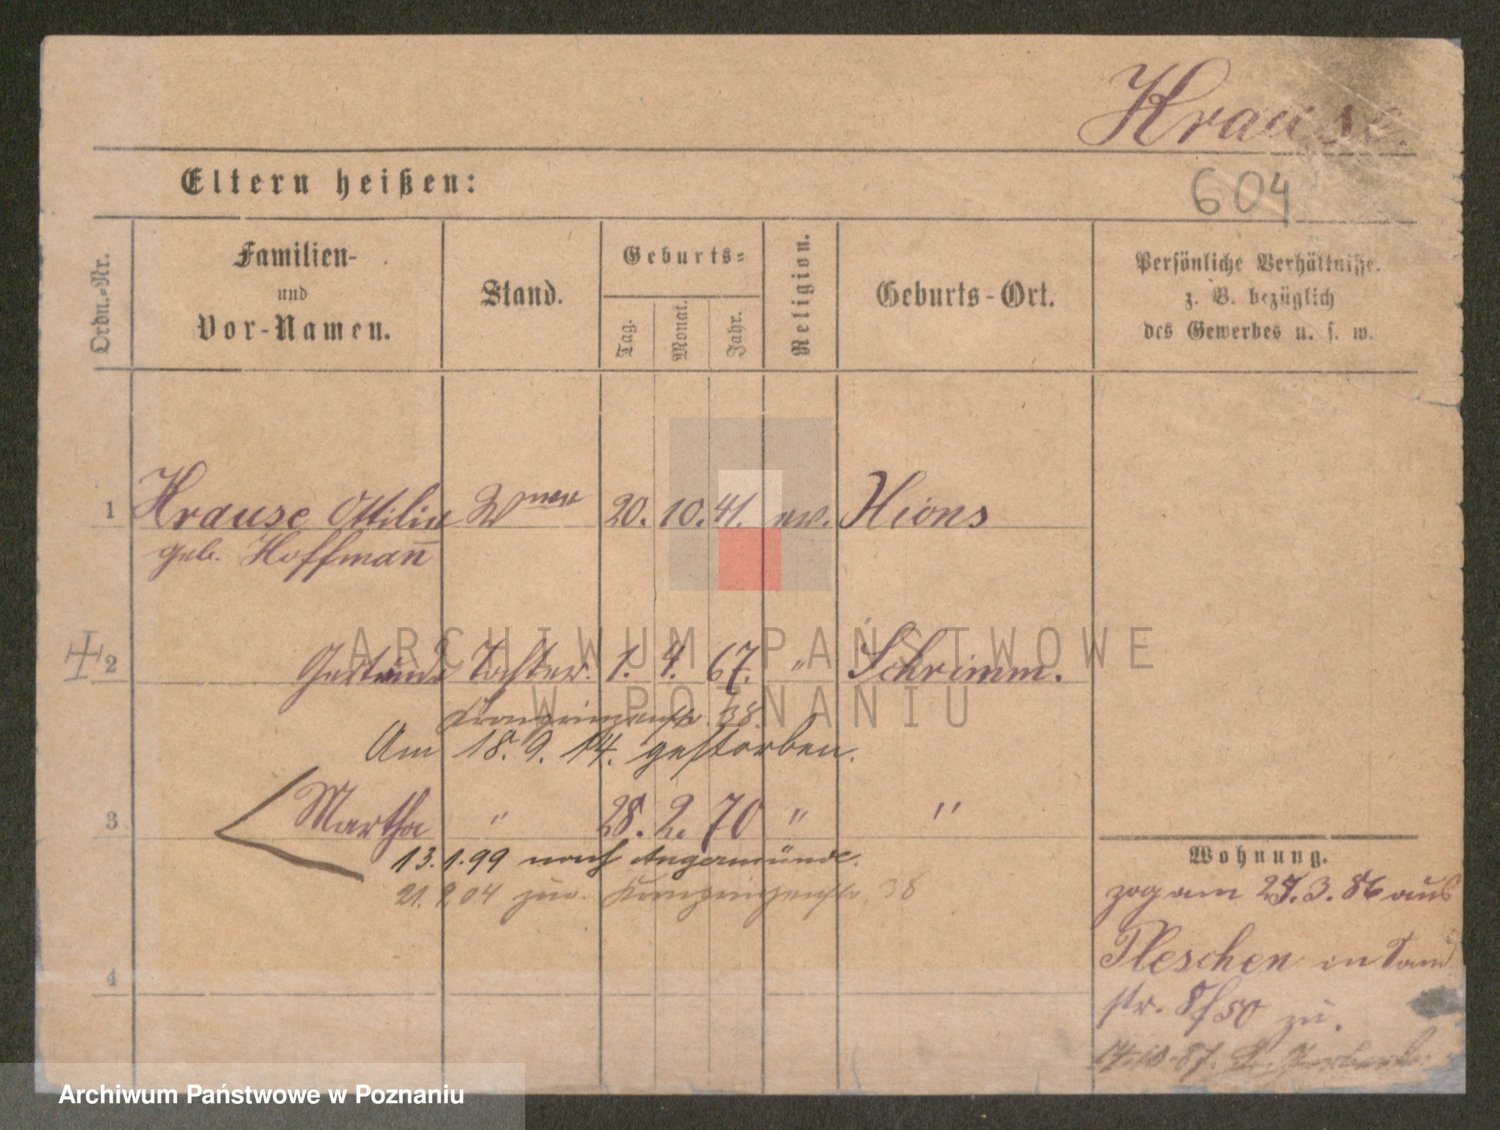 Krause.
Eltern heißen:
604
Ordn.-Nr.
Familien-
und
Vor-Namen.
Stand.
Geburts=
Tag.
Monat.
Jahr.
Religion.
Geburts-Ort.
Persönliche Verhältnisse.
z. B. bezüglich
des Gewerbes u. s. w.
1 Krause Ottilie Wwe 20. 10. 41. ev. Xions
geb. Hoffmann
2 Gertrude Tochter. 1. 4. 67. " Schrimm.
Kronprinzenstr. 38.
Am 18. 9. 14. gestorben.
3 Martha " 28. 2. 70 " "
13. 1. 99 nach Angermünde.
21. 9 04 zur. Kronprinzenstr. 38
4
Wohnung.
zog am 27. 3. 86 aus
Pleschen in
str. 8/50 zu.
ARCHIWUM PAŃSTWOWE
W POZNANIU
Archiwum Państwowe w Poznaniu